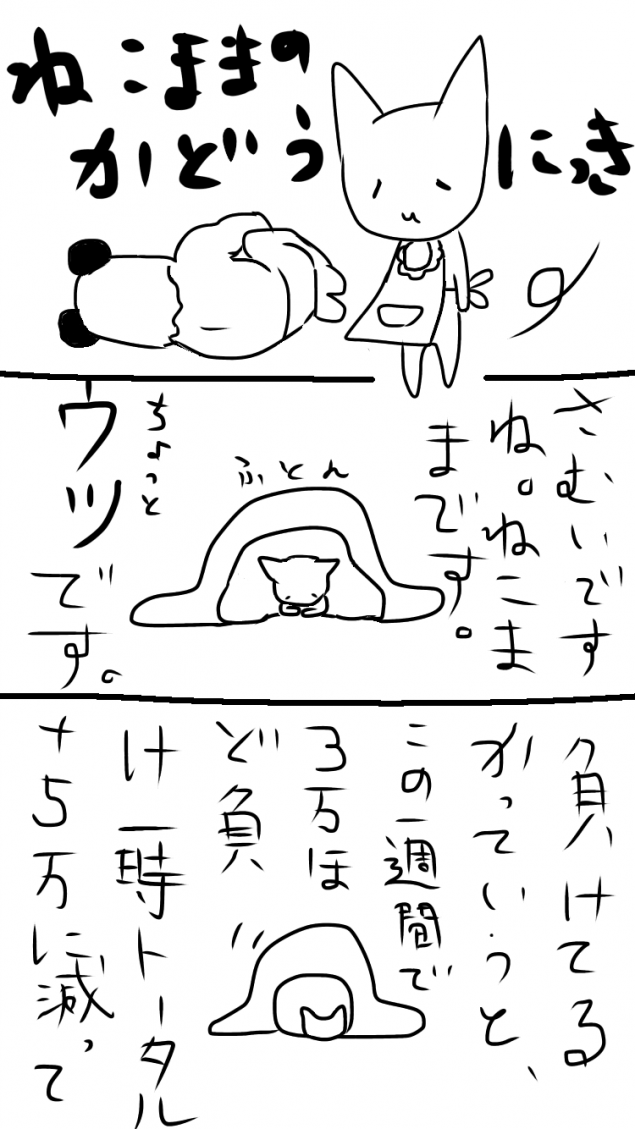 ねこままの
かどうにっき
さむいです
ね。ねこま
までです。
ふとん
ちょっと
ウツです。
負けてる
かっていうと、
この一週間で
3万ほ
ど負
け一時トータル
+5万に減って